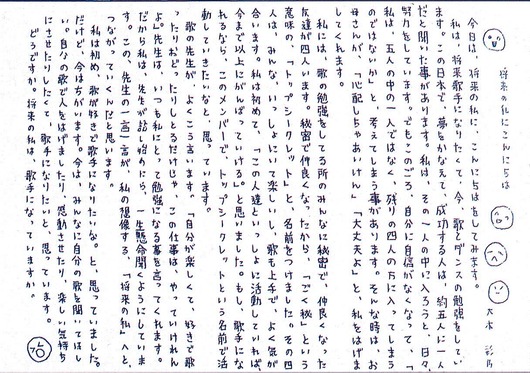 将来の私にこんにちは
大木 彩乃
今日は、将来の私に、こんにちはをしてみます。
私は、将来歌手になりたくて、今、歌とダンスの勉強をしてい
ます。この日本で、夢をかなえて、成功する人は、約五人に一人
だと聞いた事があります。私は、その一人の中に入ろうと、日々、
努力をしています。でもこのごろ、自分に自信がなくなって、「
私は、五人の中の一人ではなく、残りの四人の方に入ってしまう
のではないか」と、考えてしまう事があります。そんな時は、お
母さんが、「心配しちゃあいけん」「大丈夫よ」と、私をはげま
してくれます。
私には、歌の勉強をしてる所のみんなに秘密で、仲良くなった
友達が四人います。秘密で仲良くなったから、「ごく秘」という
意味の、「トップシークレット」と、名前をつけました。その四
人は、みんな、いっしょにいて楽しいし、歌も上手で、よく気が
合います。私は初めて、「この人達といっしょに活動していれば、
今まで以上にがんばっていける。」と思いました。もし、歌手にな
れるなら、このメンバーで、トップシークレットという名前で活
動していきたいなと、思っています。
歌の先生が、よくこう言います。「自分が楽しくて、好きで歌
ったりおどったりしとるだけじゃ、この仕事は、やっていけれん
よ。」先生は、いつも私にとって勉強になる事を言ってくれます。
だから私は、先生が話し始めたら、一生懸命聞くようにしていま
す。この、先生の一言一言が、私の想像する「将来の私」へと、
つながっていくんだと思います。
私は初め、歌が好きで歌手になりたいな、と、思っていました。
だけど、今はちがいます。今は、みんなに自分の歌を聞いてほし
い。自分の歌で人をはげましたり、感動させたり、楽しい気持ち
にさせたりしたくて、歌手になりたいと、思っています。
どうですか。将来の私は、歌手になっていますか。